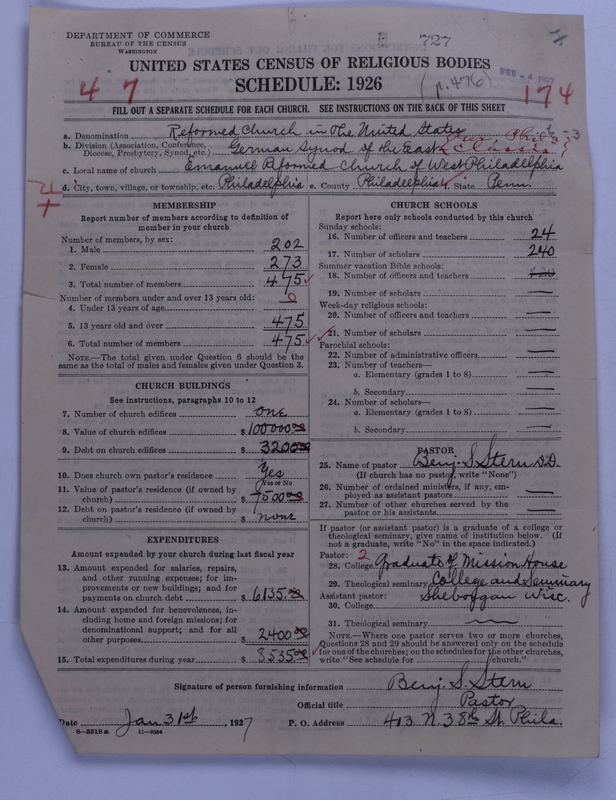 727
DEPARTMENT OF COMMERCE
BUREAU OF THE CENSUS
WASHINGTON
UNITED STATES CENSUS OF RELIGIOUS BODIES
SCHEDULE: 1926
(p. 476)
4 7
174
FILL OUT A SEPARATE SCHEDULE FOR EACH CHURCH. SEE INSTRUCTIONS ON THE BACK OF THIS SHEET
a. Denomination Reformed Church in The United States
b. Division (Association, Conference, Diocese, Presbytery, Synod, etc.) German Synod of the East Classis
c. Local name of church Emanuel Reformed Church of West Philadelphia
d. City, town, village, or township, etc. Philadelphia e. County Philadelphia State Penn.
MEMBERSHIP
Report number of members according to definition of member in your church
Number of members, by sex:
1. Male 202
2. Female 273
3. Total number of members 475
Number of members under and over 13 years old:
4. Under 13 years of age 0
5. 13 years old and over 475
6. Total number of members 475
NOTE.—The total given under Question 6 should be the same as the total of males and females given under Question 3.
CHURCH BUILDINGS
See instructions, paragraphs 10 to 12
7. Number of church edifices one
8. Value of church edifices $100000.00
9. Debt on church edifices $3200.00
10. Does church own pastor's residence Yes
Yes or No
11. Value of pastor's residence (if owned by church) $7500.00
12. Debt on pastor's residence (if owned by church) $none
EXPENDITURES
Amount expended by your church during last fiscal year
13. Amount expended for salaries, repairs, and other running expenses; for improvements or new buildings; and for payments on church debt $6135.00
14. Amount expended for benevolences, including home and foreign missions; for denominational support; and for all other purposes $2400.00
15. Total expenditures during year $8535.00
CHURCH SCHOOLS
Report here only schools conducted by this church
Sunday schools:
16. Number of officers and teachers 24
17. Number of scholars 240
Summer vacation Bible schools:
18. Number of officers and teachers
19. Number of scholars —
Week-day religious schools:
20. Number of officers and teachers —
21. Number of scholars —
Parochial schools:
22. Number of administrative officers —
23. Number of teachers—
a. Elementary (grades 1 to 8) —
b. Secondary —
24. Number of scholars—
a. Elementary (grades 1 to 8) —
b. Secondary —
PASTOR
25. Name of pastor Benj. S. Stern D.D.
(If church has no pastor, write "None")
26. Number of ordained ministers, if any, employed as assistant pastors —
27. Number of other churches served by the pastor or his assistants —
If pastor (or assistant pastor) is a graduate of a college or theological seminary, give name of institution below. (If not a graduate, write "No" in the space indicated.)
Pastor: 2
28. College Graduate of Mission House
29. Theological seminary College and Seminary
Assistant pastor: Sheboygan Wisc.
30. College
31. Theological seminary —
NOTE.—Where one pastor serves two or more churches, Questions 28 and 29 should be answered only on the schedule for one of the churches; on the schedules for the other churches, write "See schedule for church."
Signature of person furnishing information Benj. S. Stern
Official title Pastor
Date Jan 31st, 1927 P. O. Address 413 N. 38th St. Phila.
8-5519a 11-9054